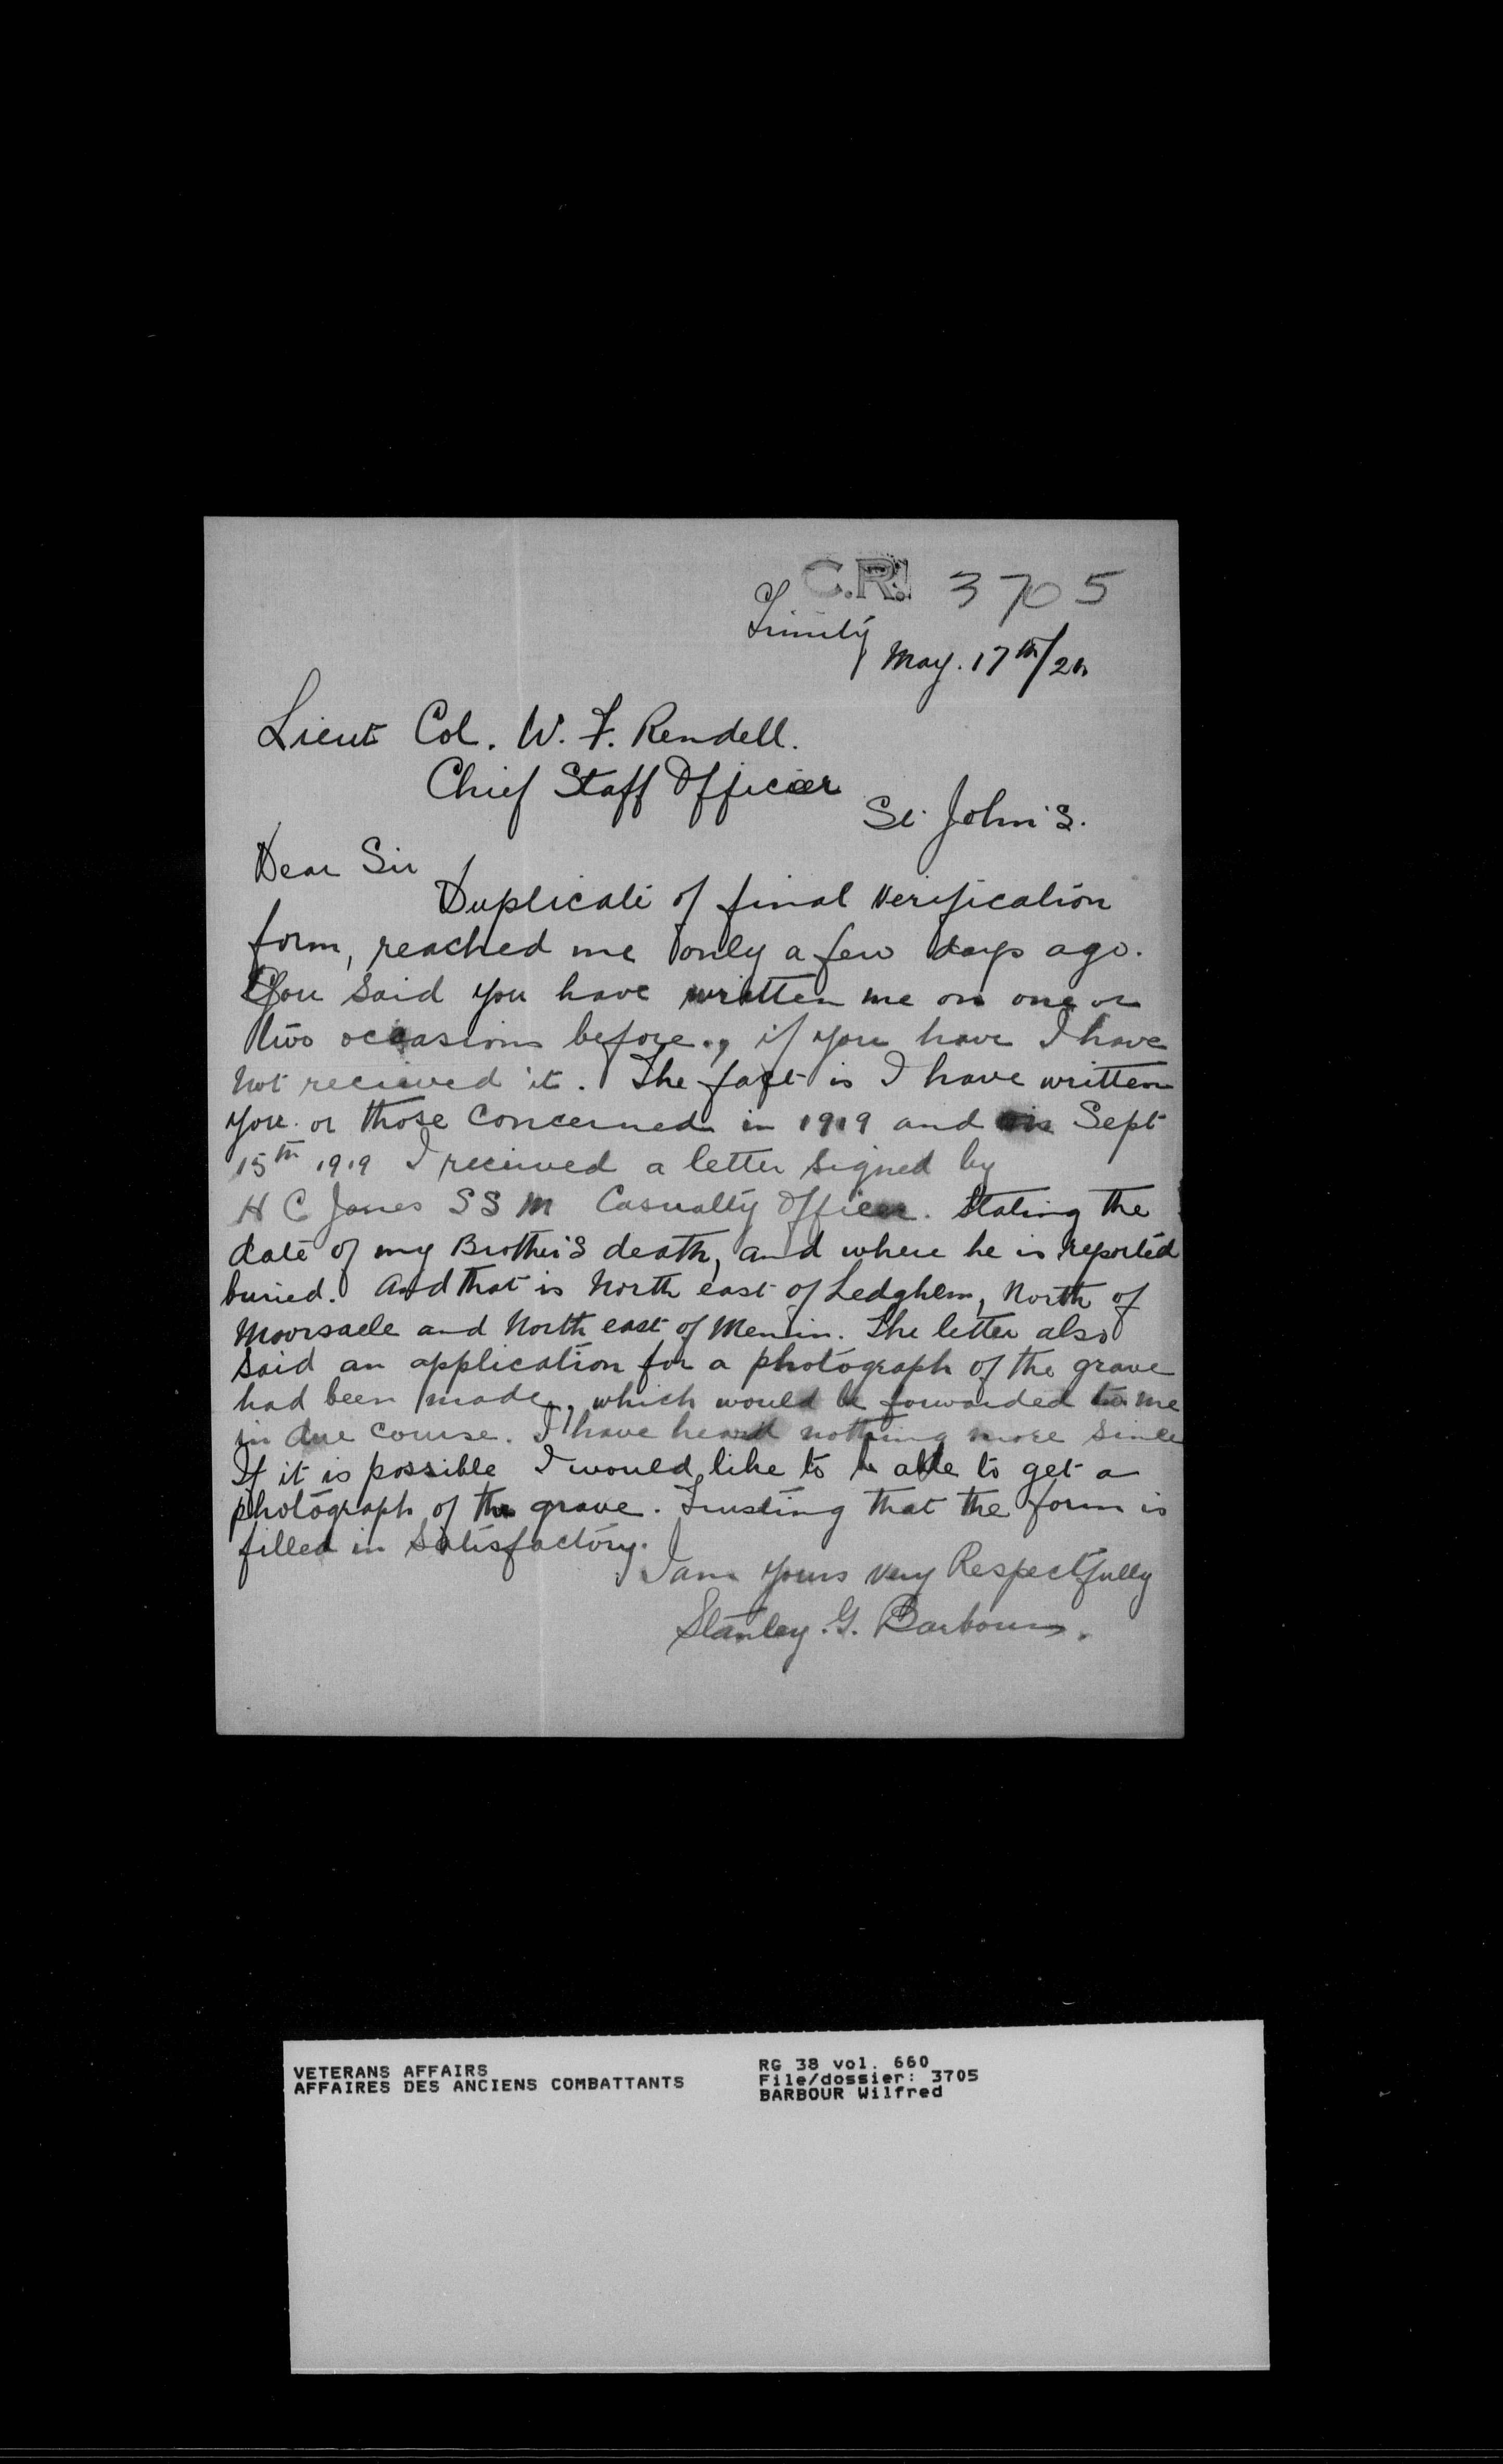 C.R. 3705
Trinity
May. 17th/20
Lieut Col. W. F. Rendell.
Chief Staff Officer
St. John's.
Dear Sir
Duplicate of final verification
form, reached me only a few days ago.
You said you have written me on one or
two occasions before., if you have I have
not recieved it. The fact is I have written
you or those concerned in 1919 and on Sept
15th 1919 I recieved a letter signed by
H C Janes S S M Casualty Officer. Stating the
date of my Brother's death, and where he is reported
buried. And that is North east of Ledghem, North of
Moorsaele and North east of Menin. The letter also
said an application for a photograph of the grave
had been made, which would be forwarded to me
in due course. I have heard nothing more since
If it is possible I would like to be able to get a
photograph of the grave. Trusting that the form is
filled in satisfactory.
I am yours very Respectfully
Stanley. G. Barbour.
VETERANS AFFAIRS
AFFAIRES DES ANCIENS COMBATTANTS
RG 38 vol. 660
File/dossier: 3705
BARBOUR Wilfred